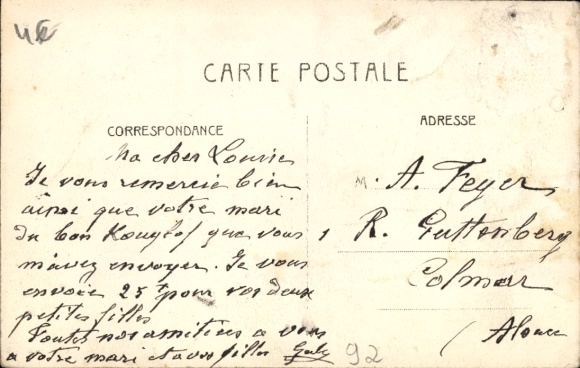 4€
CARTE POSTALE
CORRESPONDANCE
ADRESSE
Ma cher Louise
Je vous remercie bien
ainsi que votre mari
du bon Kouglof que vous
m'avez envoyer. Je vous
envoie 25f pour vos deux
petites filles
Toutes nos amitiées a vous
a votre mari et a vos filles Gaby
M. A. Feyer
1 R. Guttenberg
Colmar
Alsace
92